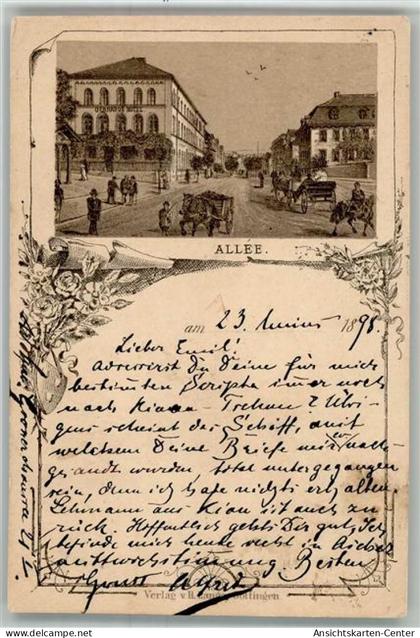 ALLÉE.
am 23. 1898.
Lieber Emil!
Adressirst du Deine für mich
bestimmten Scripta immer noch
nach Kiau-Tschau? Übri-
gens scheint das Schiff, mit
welchem Deine Briefe mir nach
gesandt wurden, total untergegangen
sein, denn ich habe nichts erhalten
Lehmann aus Kiau ist auch zu
rück. Hoffentlich gehts Dir gut, Ich
befinde mich heute recht in
Besten
Gruss Alfred
Verlag v. H. Lange, Göttingen
Ansichtskarten-Center